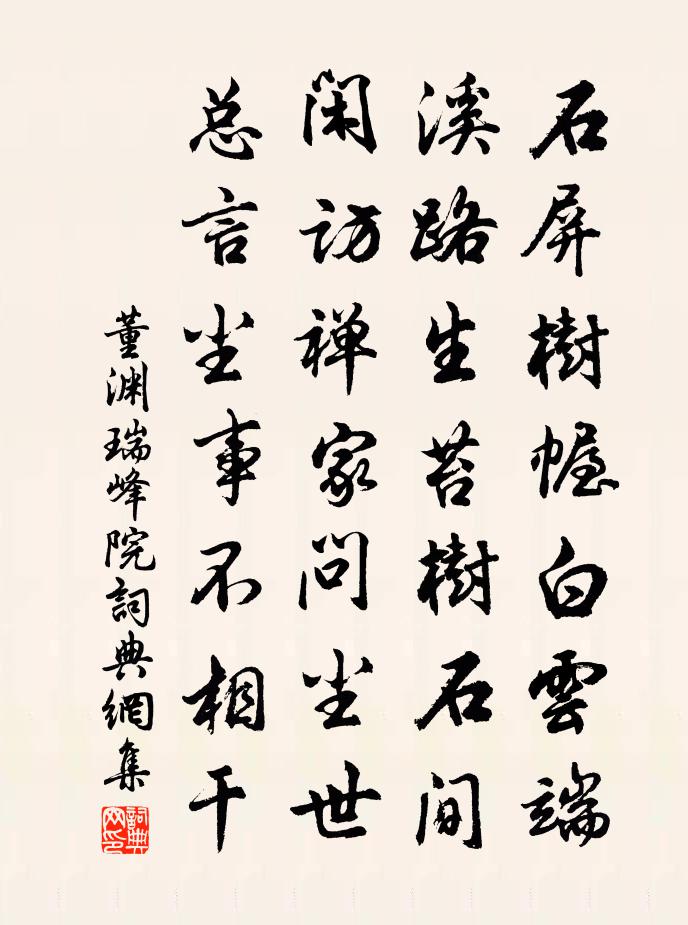 石屏樹幄白雲端
溪路生苔樹石间
闲访禅家问尘世
总言尘事不相干
董渊瑞峰院詞典網集
詞典网印